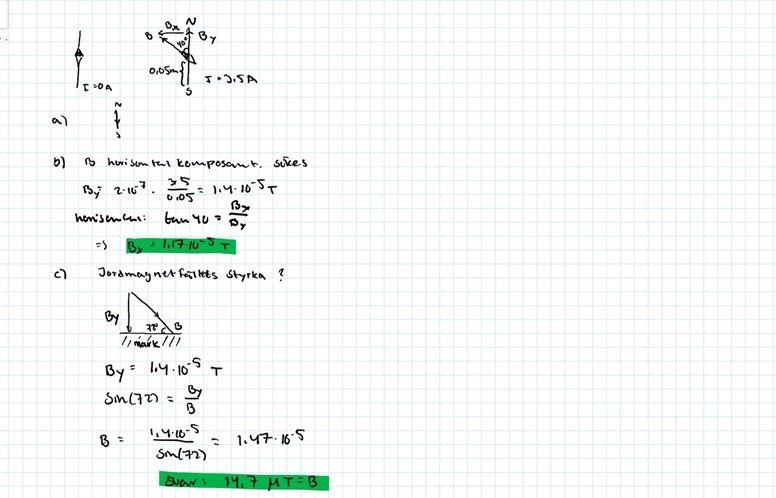 N
Bx
B
By
40°
0,05m
I = 3.5A
S
I = 0A
a)
N
S
b) B horisontal komposant. sökes
By = 2·10⁻⁷ · 3.5/0.05 = 1,4·10⁻⁵ T
horisontal: tan 40 = Bx/By
=> Bx = 1,17·10⁻⁵ T
c) Jordmagnetfältets styrka ?
By
72°
B
// mark ///
By = 1,4·10⁻⁵ T
Sin(72) = By/B
B = 1,4·10⁻⁵/sin(72) = 1.47·10⁻⁵
Svar: 14,7 μT = B